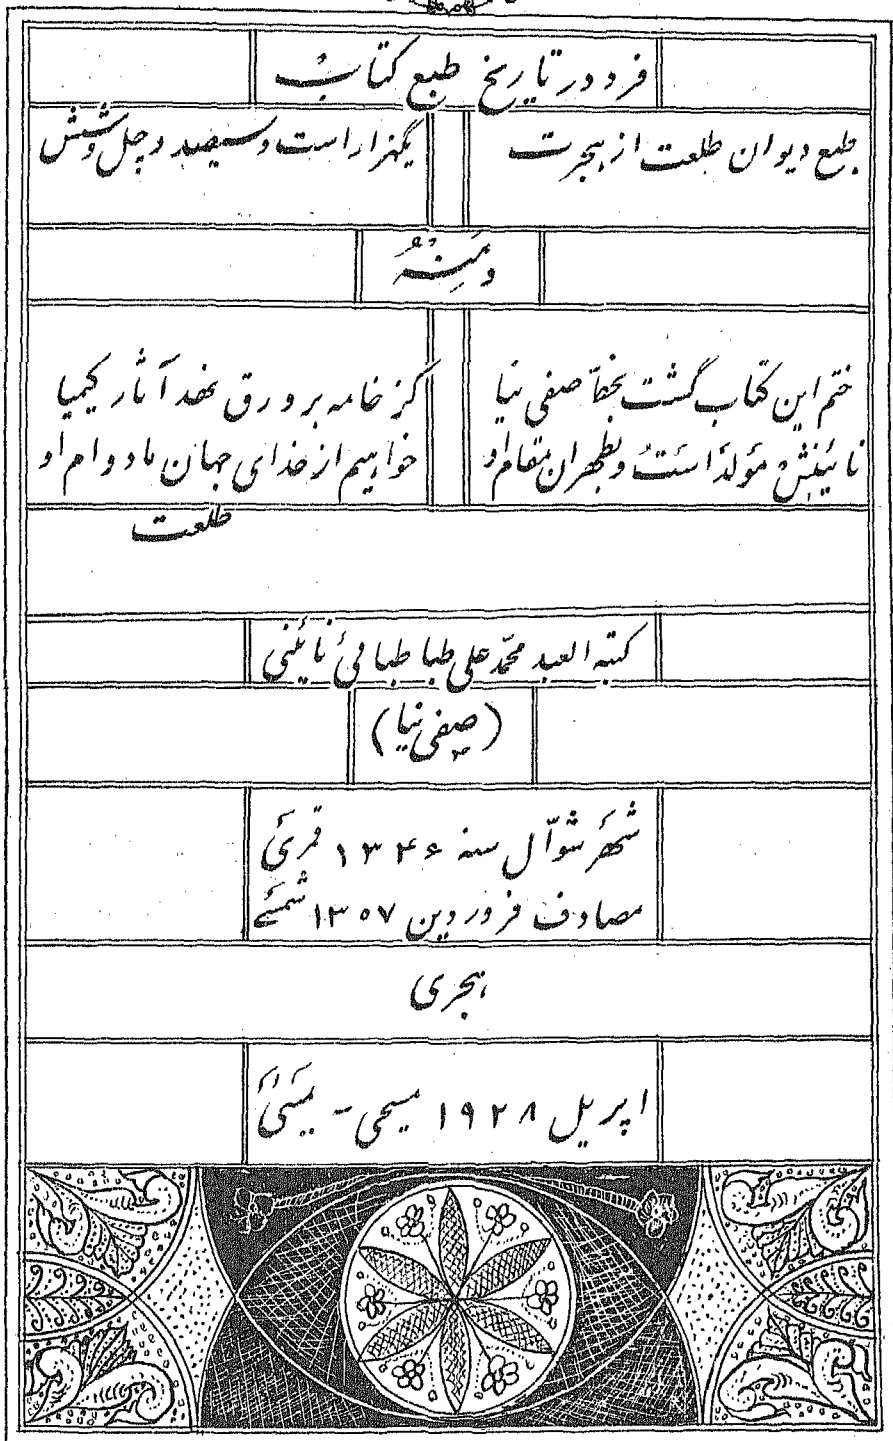 فرد در تاریخ طبع کتاب
طبع دیوان طلعت از هجرت
یکهزار است و سیصد و چل و شش
و مِنهُ
ختم این کتاب گشت بخطّ صفی نیا
کز خامه بر ورق نهد آثار کیمیا
نائینش مولد است و بطهران مقام او
خواهیم از خدای جهان مادوام او
طلعت
کتبه العبد محمّد علی طباطبائی نائینی
(صفی نیا)
شهر شوّال سنه ۱۳۴۶ قمری
مصادف فروردین ۱۳۰۷ شمسی
هجری
اپریل ۱۹۲۸ مسیحی - بمبئی